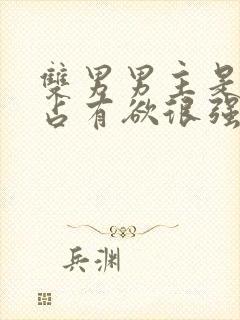 双男男主是
占有欲很强
兵渊